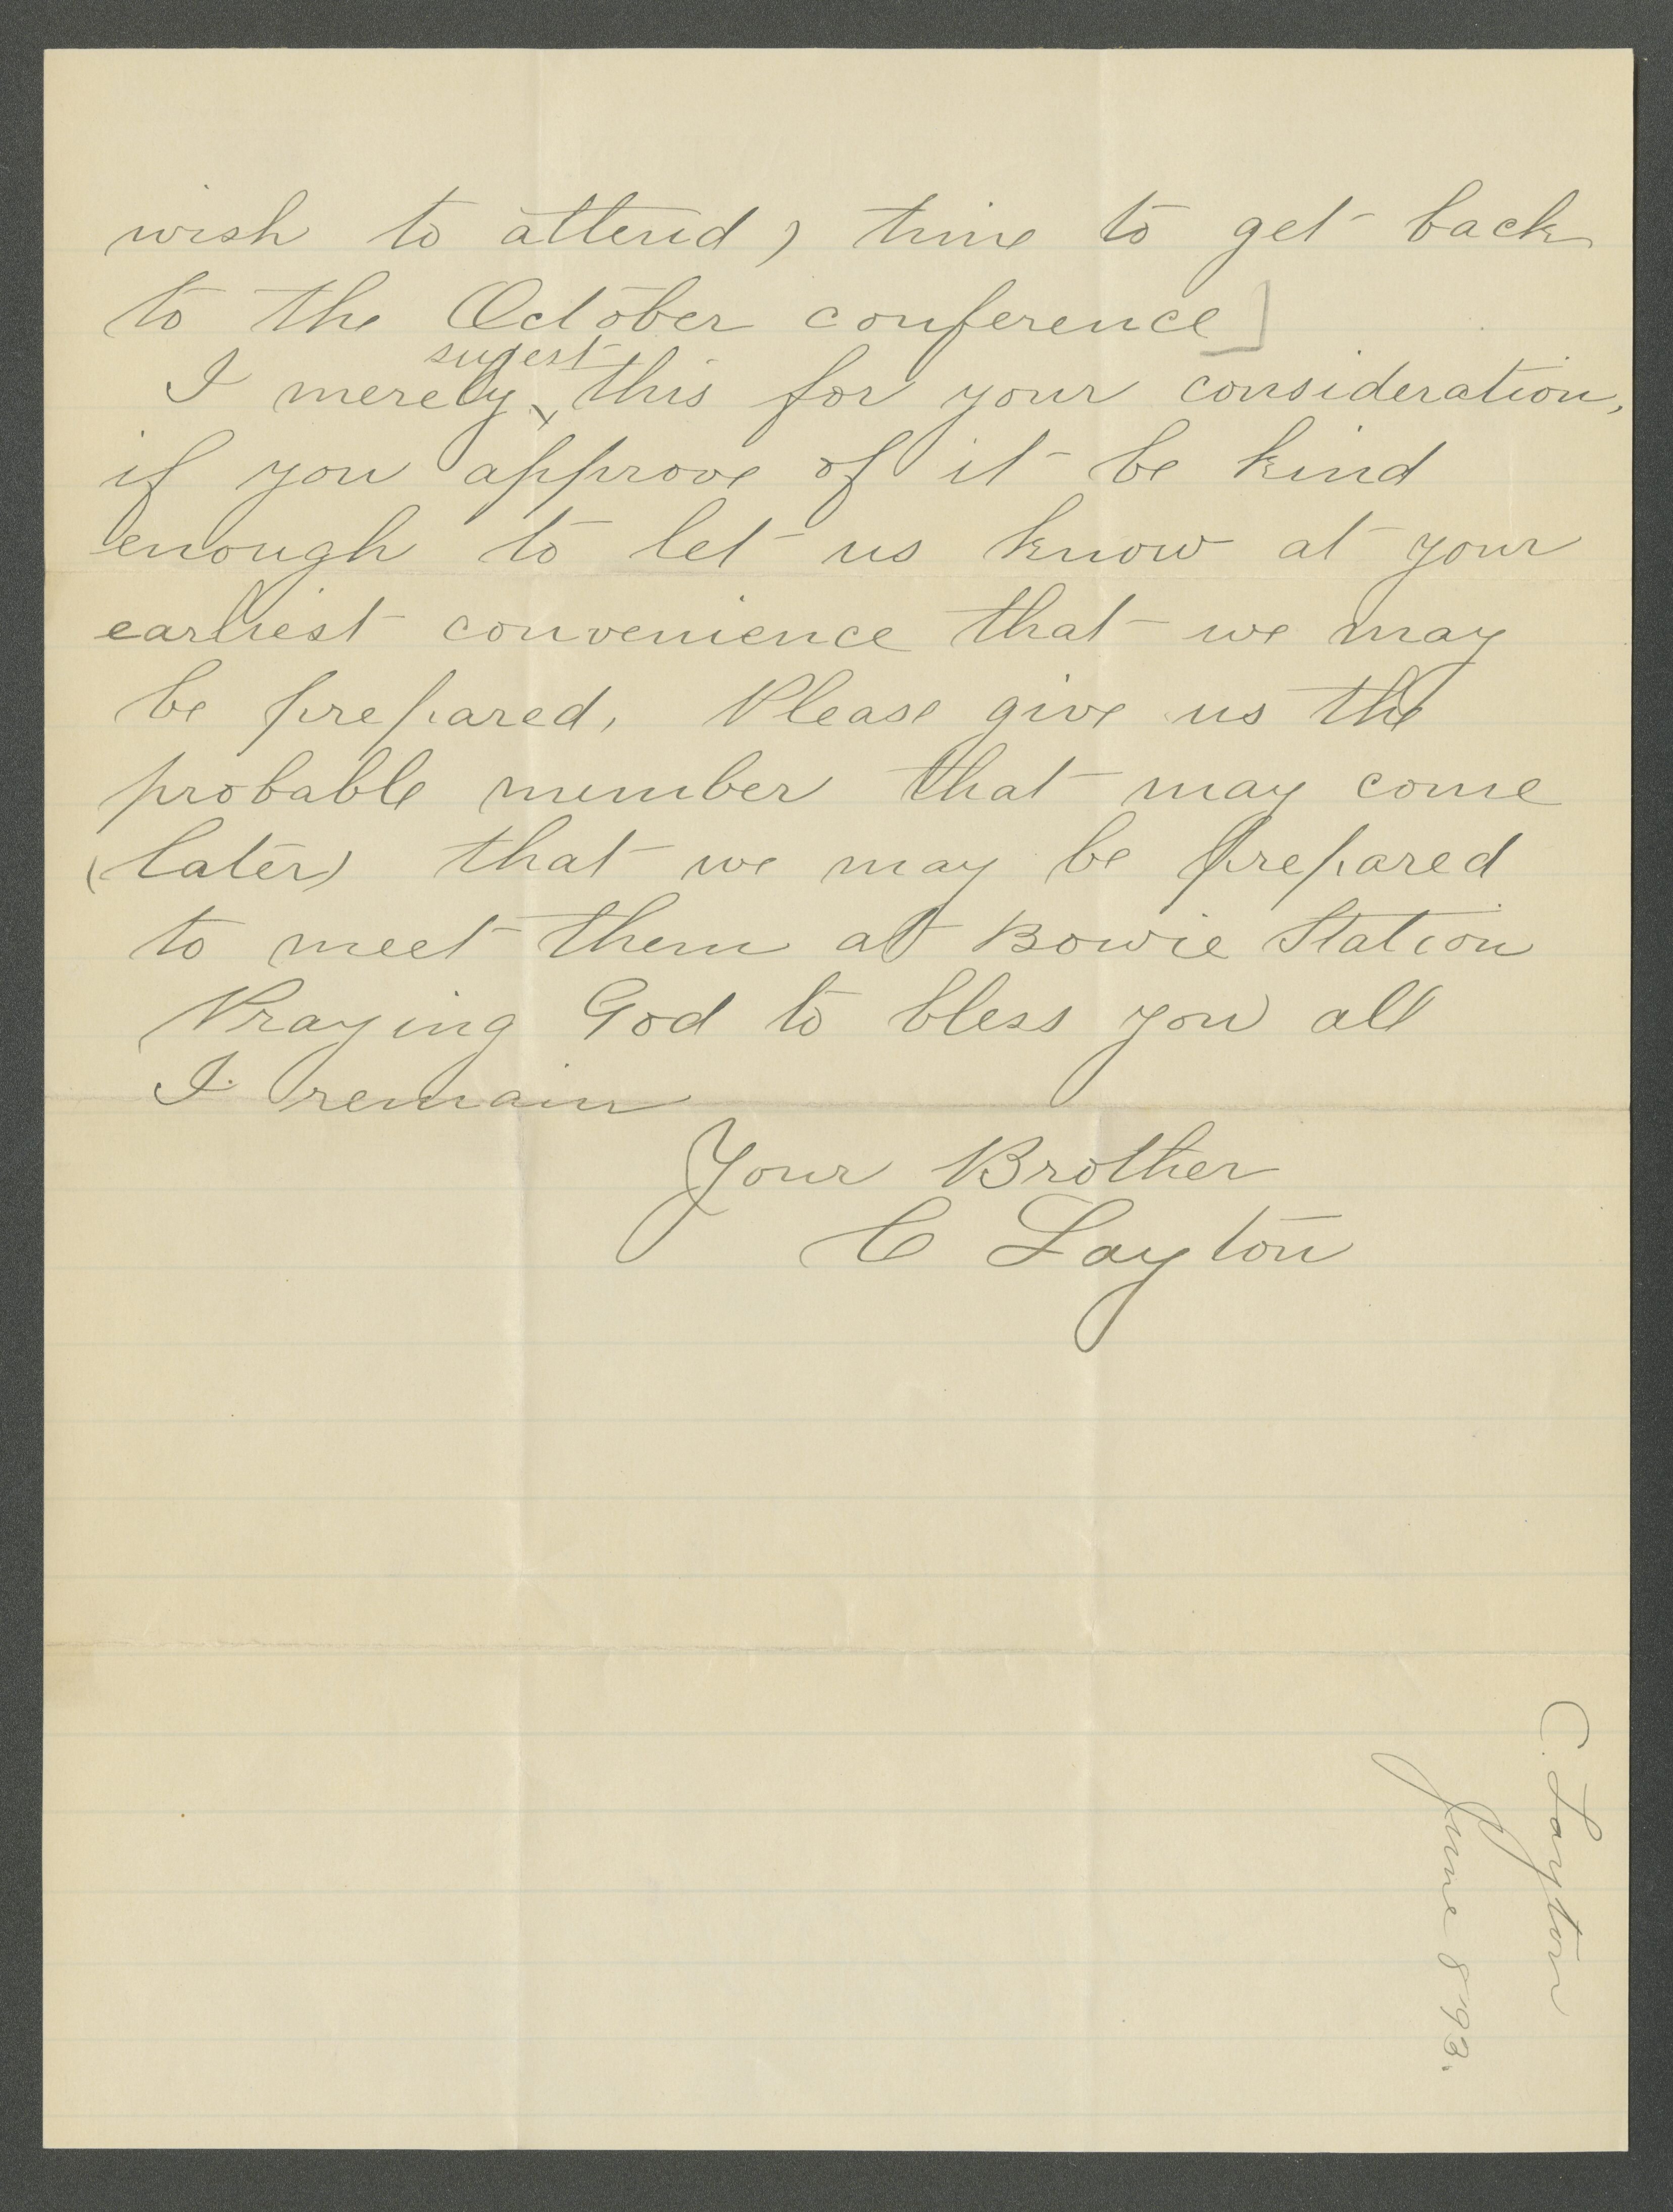 wish to attend) time to get back
to the October conference]
sugest
I merely this for your consideration,
if you approve of it be kind
enough to let us know at your
earliest convenience that we may
be prepared, Please give us the
probable number that may come
(later) that we may be prepared
to meet them at Bowie Station
Praying God to bless you all
I remain
Your Brother
C Layton
C. Layton
June 8 93.